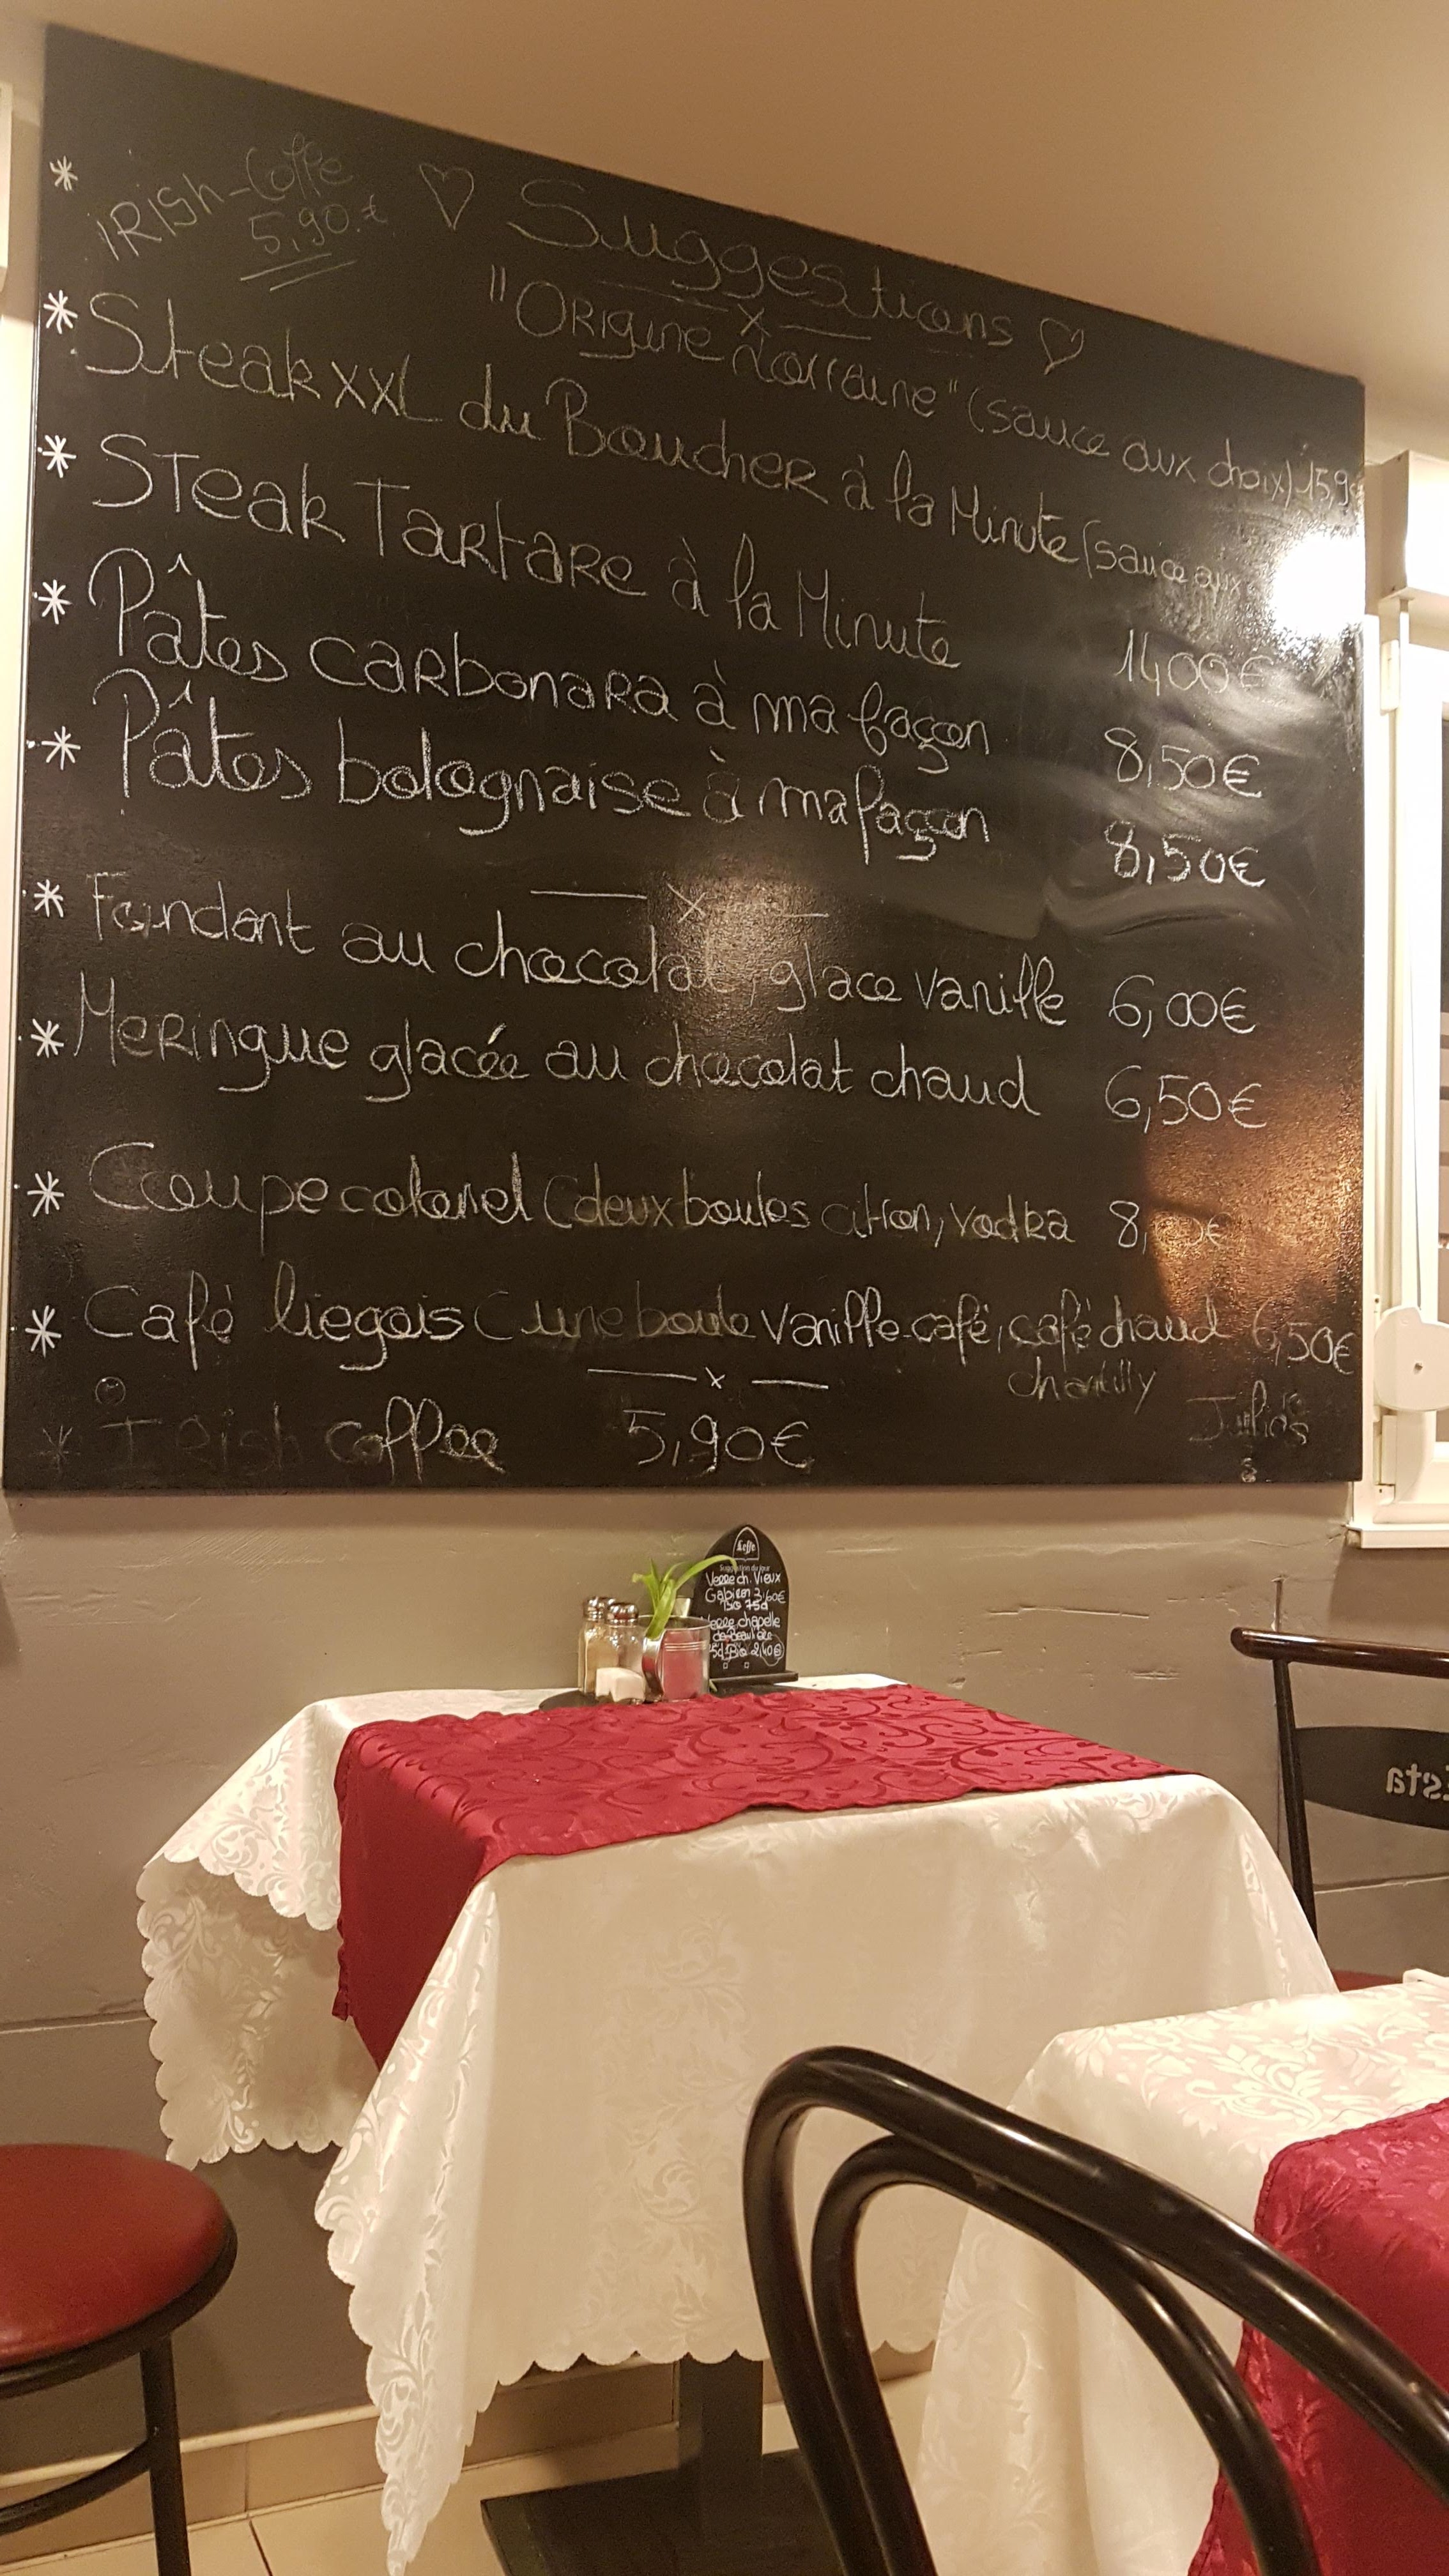 * IRISh-Coffe
5,90.€
♡ Suggestions ♡
— x —
"ORigine Lorraine" (sauce aux choix) 15,9
* Steak XXL du BoucheR à la Minute (sauce aux
* STeak TaRtaRe à la Minute 1400€
* Pâtes caRbonaRa à ma façon 8,50€
* Pâtes bolognaise à ma façon 8,50€
— x —
* Fondant au chocolat, glace vanille 6,00€
* MeRingue glacée au chocolat chaud 6,50€
* Coupe colonel (deux boules citron, vodka 8,
* Café liegois (une boule vanille-café, café chaud 6,50€
chantilly
— x —
* IRish coffee 5,90€
Leffe
Suggestion du jour
Verre ch. Vieux
3,60€
Bio 75d
Verre chapelle
de
Bio 2,40€
Esta